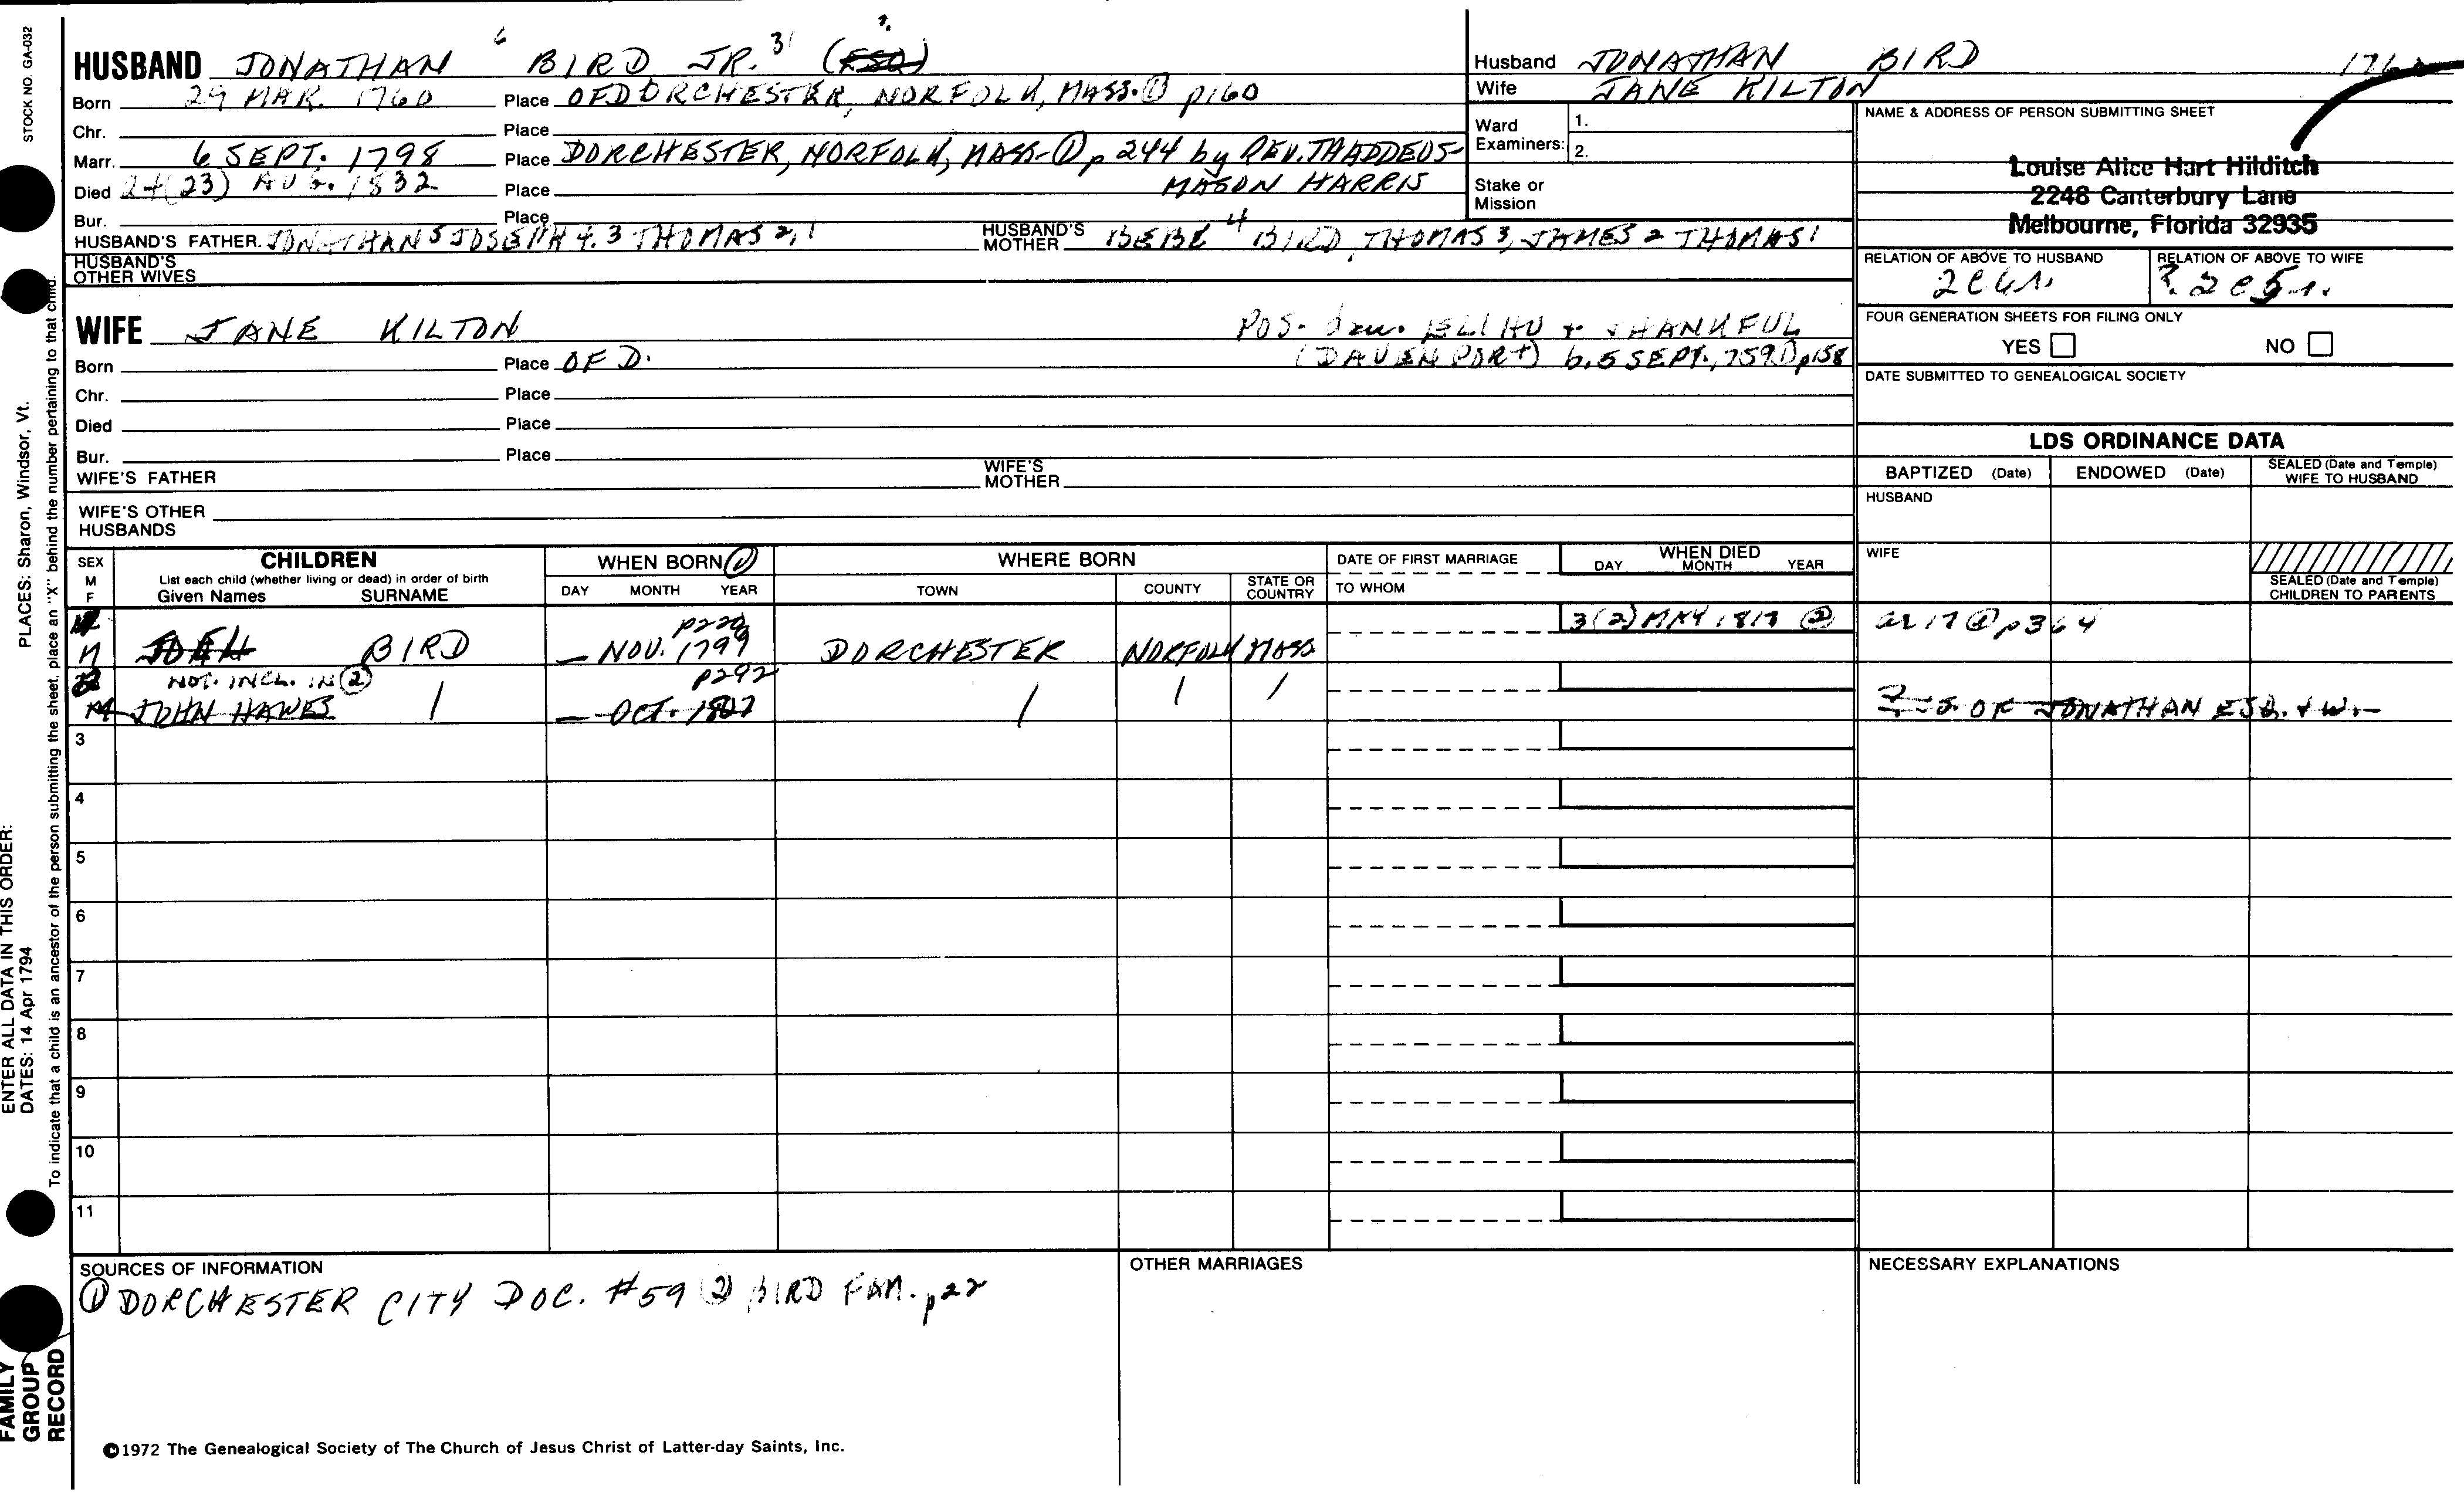 STOCK NO. GA-032
PLACES: Sharon, Windsor, Vt.
ENTER ALL DATA IN THIS ORDER:
DATES: 14 Apr 1794
To indicate that a child is an ancestor of the person submitting the sheet, place an "X" behind the number pertaining to that child.
FAMILY
GROUP
RECORD
HUSBAND JONATHAN 6 BIRD JR. 31 (ESQ) ?
Born 29 MAR. 1760 Place OF DORCHESTER, NORFOLK, MASS. ① p160
Chr. Place
Marr. 6 SEPT. 1798 Place DORCHESTER, NORFOLK, MASS- ① p 244 by REV. THADDEUS
MASON HARRIS
Died 24(23) AUG. 1832 Place
Bur. Place
HUSBAND'S FATHER JONATHAN 5 JOSEPH 4, 3 THOMAS 2, 1
HUSBAND'S MOTHER 4 BIRD, THOMAS 3, JAMES 2 THOMAS 1
HUSBAND'S OTHER WIVES
Husband JONATHAN BIRD 1760
Wife JANE KILTON
Ward Examiners: 1.
2.
Stake or Mission
NAME & ADDRESS OF PERSON SUBMITTING SHEET
Louise Alice Hart Hilditch
2248 Canterbury Lane
Melbourne, Florida 32935
RELATION OF ABOVE TO HUSBAND
RELATION OF ABOVE TO WIFE
FOUR GENERATION SHEETS FOR FILING ONLY
YES NO
DATE SUBMITTED TO GENEALOGICAL SOCIETY
WIFE JANE KILTON POS. dau. ELIHU + THANKFUL
Born Place OF D. (DAVENPORT) b. 5 SEPT. 1759 ① p158
Chr. Place
Died Place
Bur. Place
WIFE'S FATHER
WIFE'S MOTHER
WIFE'S OTHER HUSBANDS
LDS ORDINANCE DATA
BAPTIZED (Date) ENDOWED (Date) SEALED (Date and Temple) WIFE TO HUSBAND
HUSBAND
WIFE
SEALED (Date and Temple) CHILDREN TO PARENTS
SEX M F
CHILDREN
List each child (whether living or dead) in order of birth
Given Names SURNAME
WHEN BORN ①
DAY MONTH YEAR
WHERE BORN
TOWN COUNTY STATE OR COUNTRY
DATE OF FIRST MARRIAGE
TO WHOM
WHEN DIED
DAY MONTH YEAR
3(2) MAY 1817 ② ae 17 ② p364
M BIRD — NOV. 1799 DORCHESTER NORFOLK MASS
NOT. INCL. IN ② p292
M JOHN HAWES / — OCT. 1807 / / / ? S OF JONATHAN ESQ. + W. —
3
4
5
6
7
8
9
10
11
SOURCES OF INFORMATION
① DORCHESTER CITY DOC. #59 ② BIRD FAM. p22
OTHER MARRIAGES
NECESSARY EXPLANATIONS
©1972 The Genealogical Society of The Church of Jesus Christ of Latter-day Saints, Inc.